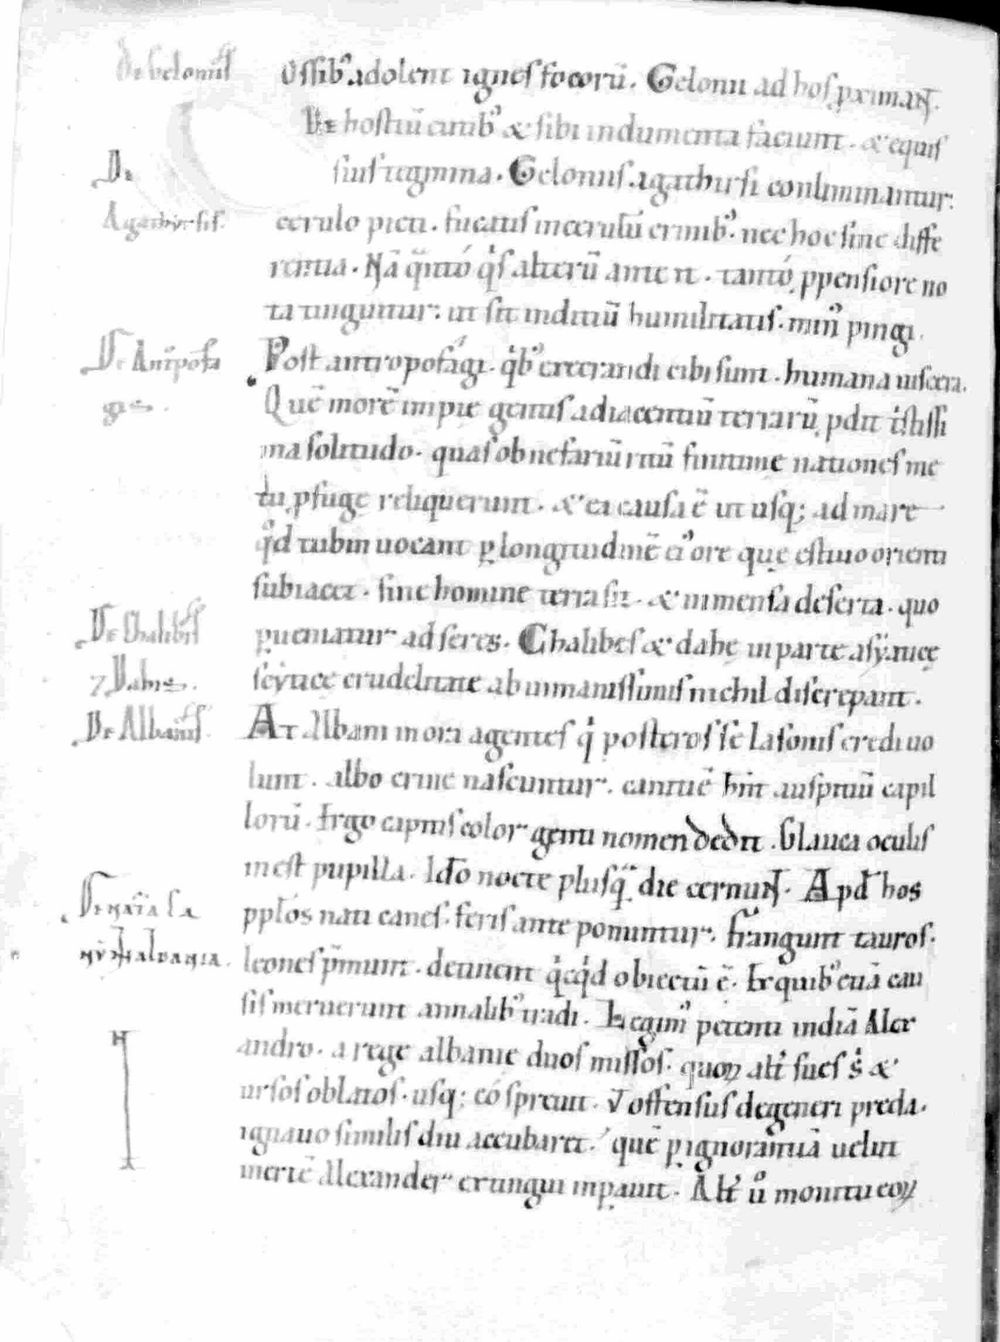 De Gelonis
Ossib᾽ adolent ignes focorū. Geloni ad hos ꝓximant.
De hostiū cutib᾽ & sibi indumenta faciunt. & equis
suis tegmina. Gelonis agathirsi conliminantur.
De
Agathirsis.
cerulo picti. fucatis in cerulū crinib᾽. nec hoc sine diffe
rentia. Nā quāto q͛s alterū ante it. tanto ꝓpensiore no
ta tinguitur. ut sit inditiū humilitatis. min᾽ pingi.
De Antropofa
gis.
Post antropofagi. q͛b᾽ execrandi cibi sunt. humana uiscera.
Quē morē impie gentis adiacentiū terrarū ꝓdit t͛stissi
ma solitudo. quas ob nefariū ritū finitime nationes me
tu ꝓfuge reliquerunt. & ea causa ē ut usq; ad mare
q͛d tabin uocant ꝑ longitudinē ei᾽ ore que estiuo orienti
subiacet. sine homine terra sit. & inmensa deserta. quo
De Chalibis
7 Dahis.
ꝑueniatur ad seres. Chalibes & dahe in parte asyatice
scytice crudelitate ab inmanissimis nichil discrepant.
De Albanis.
At Albani in ora agentes q͛ posteros se Iasonis credi uo
lunt. albo crine nascuntur. canitiē hn̄t auspitiū capil
lorū. Ergo capitis color genti nomen dedit. Glauca oculis
inest pupilla. Ideo nocte plusq̄ die cernunt. Apd̄ hos
De
ALBANIA.
pplōs nati canes. feris ante ponuntur. frangunt tauros.
leones p̄munt. detinent q͛cq͛d obiectū ē. Ex quib᾽ etiā cau
sis meruerunt annalib᾽ tradi. Legim᾽ petenti indiā Alex
andro. a rege albanie duos missos. quoꝝ alt͛ sues s͛ &
ursos oblatos. usq; eo spreuit. ut offensus degeneri preda.
ignauo similis diu accubaret. quē ꝑ ignorantiā uelut
inertē Alexander extingui inꝑauit. Alt͛ ů monitu eoꝝ